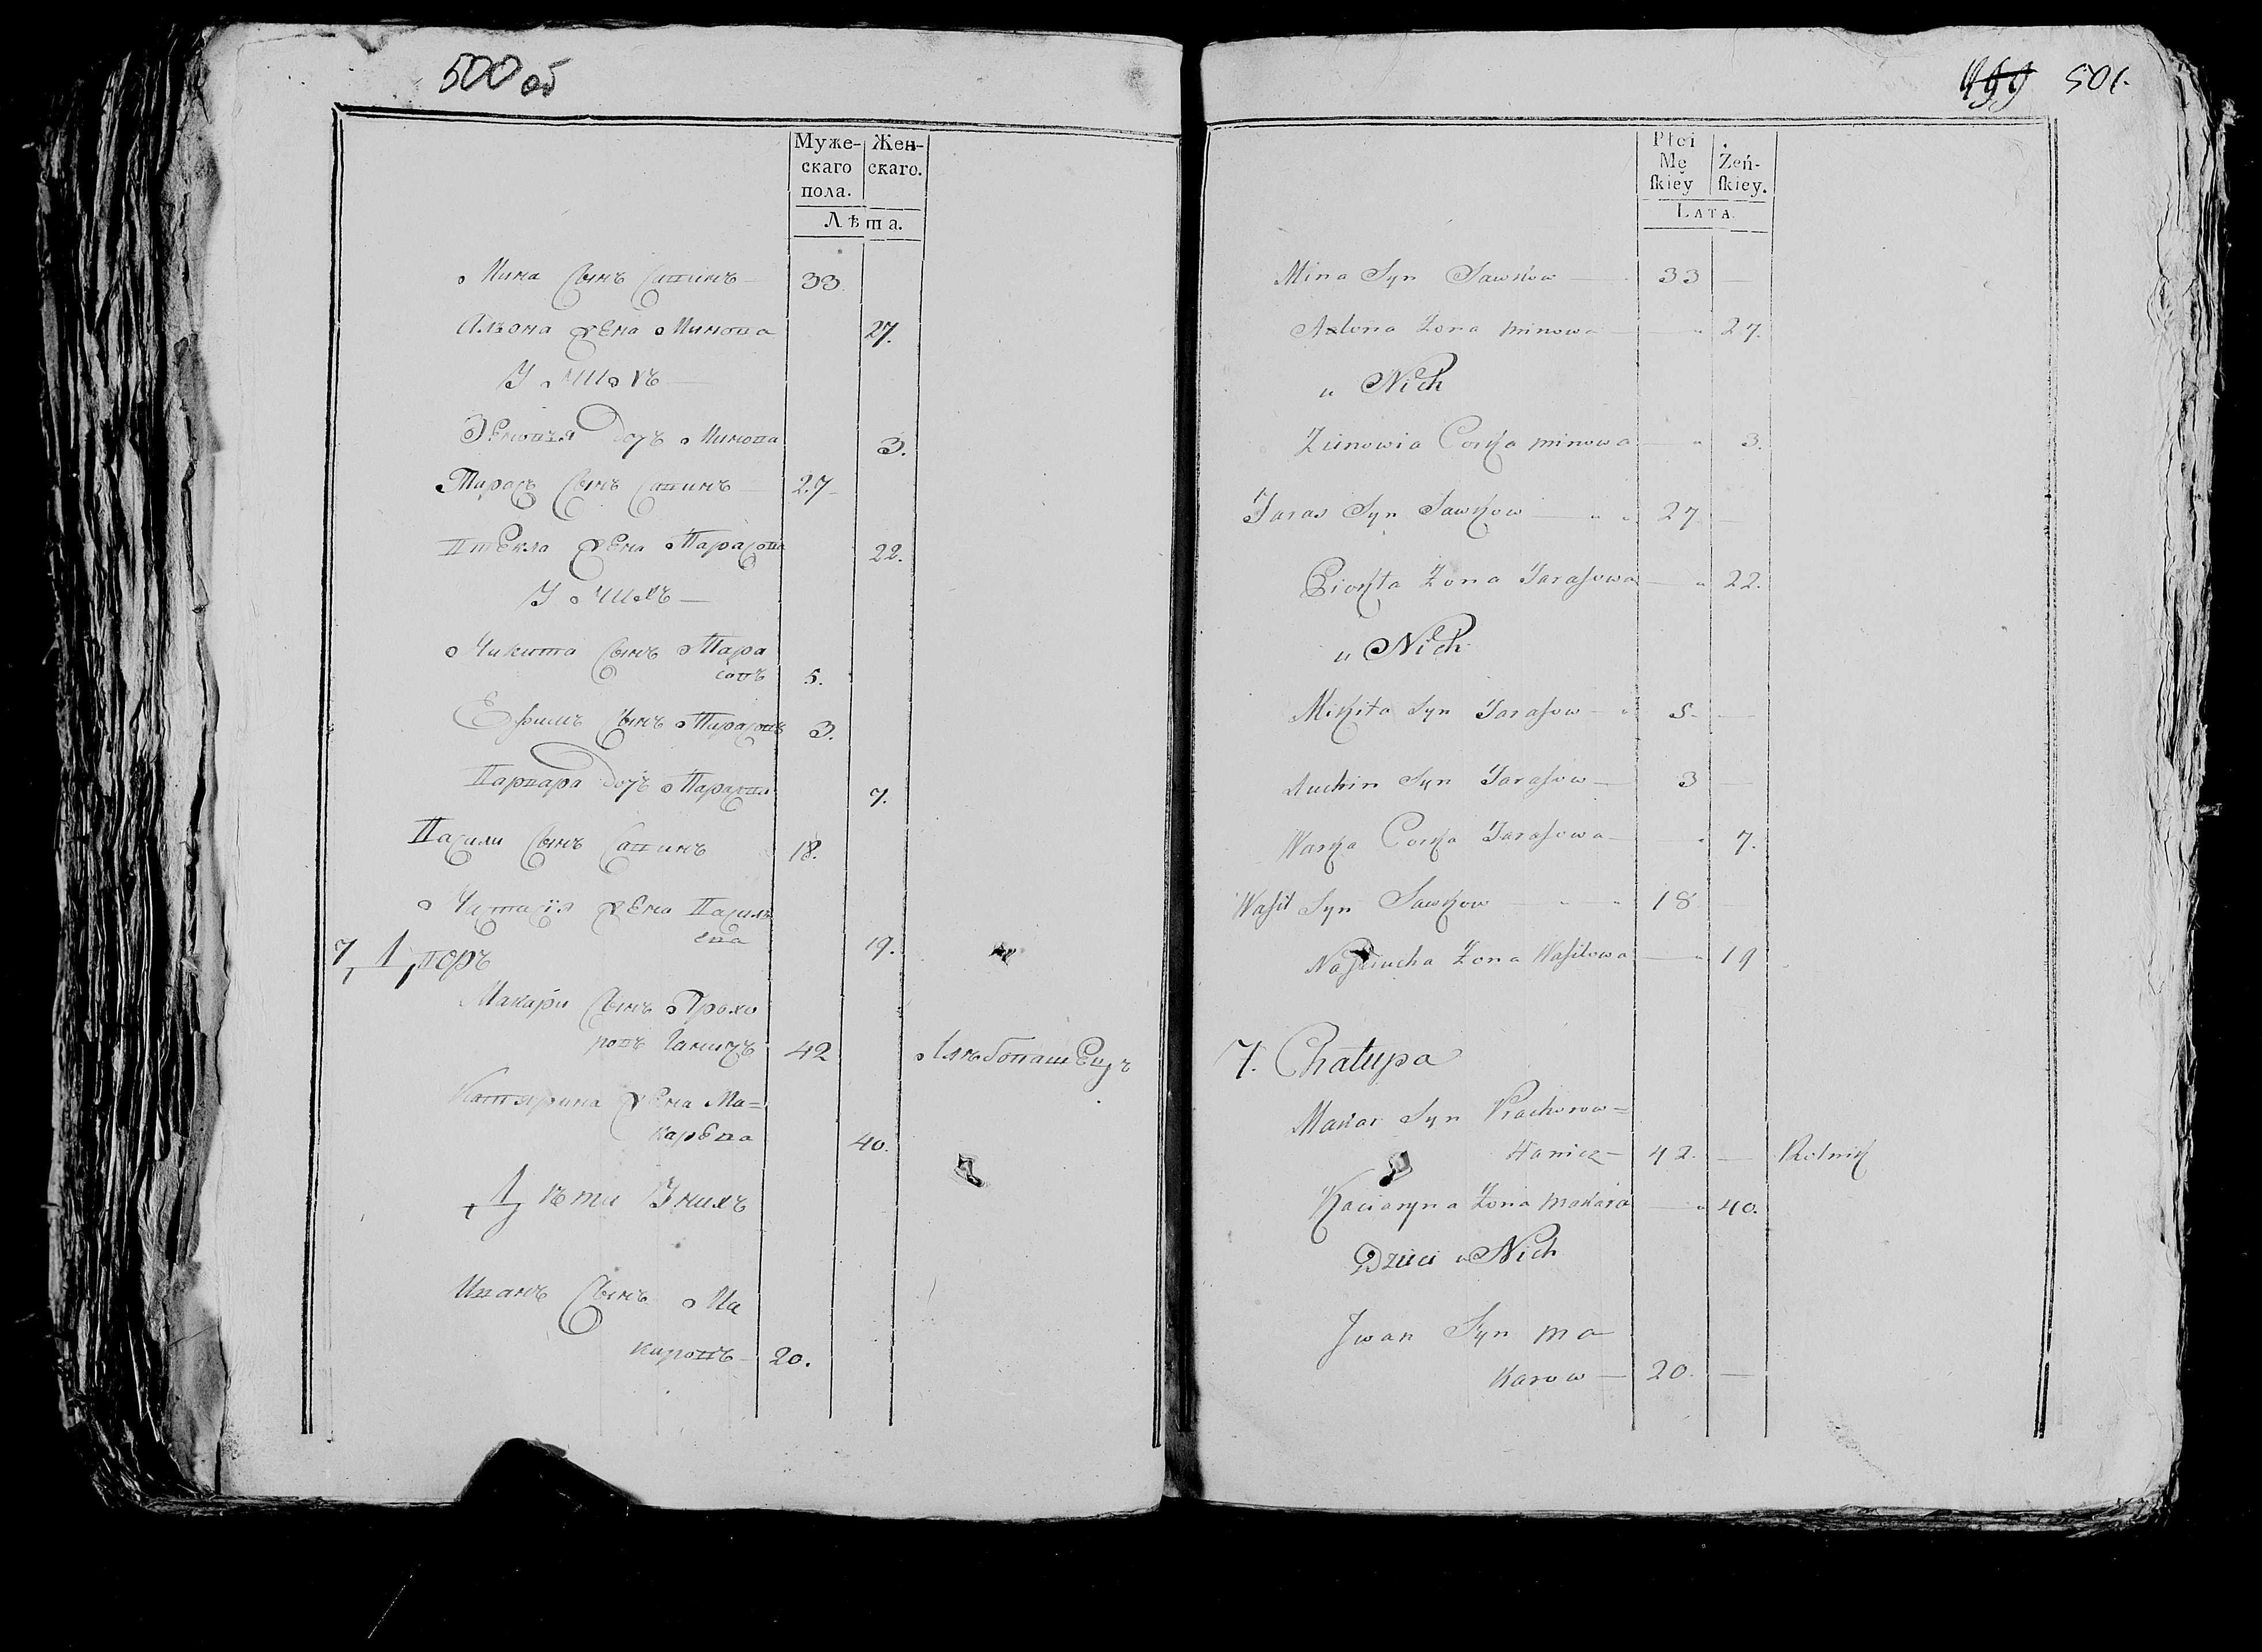 500 об
Муже-
скаго
пола.
Жен-
скаго.
Лѣта.
Мина Сынъ Савинъ 33.
Алѣона Жена Минова 27.
У Нихъ
Зеновъя дочъ Минова 3.
Тарасъ Сынъ Савинъ 27
Втекла Жена Тарасова 22.
У Нихъ
Никита Сынъ Тара
совъ 5.
Ефимъ Сынъ Тарасовъ 3.
Варвара дочъ Тарасова 7.
Васили Сынъ Савинъ 18.
Настасія Жена Василь
ева 19.
7 Дворъ
Макари Сынъ Прохо
ровъ Ганичъ 42 Хлѣбопашецъ
Катярина Жена Ма=
карева 40.
Дѣти У нихъ
Иванъ Сынъ Ма
каровъ 20.
499 501.
Płci
Mę
skiey
Żeń-
skiey.
LATA
Mina Syn Sawkow 33
Alona Zona minowa 27.
u Nich
Zienowia Corka minowa 3.
Taras Syn Sawkow 27
Zona Tarasowa 22.
u Nich
Mikita Syn Tarasow 5.
Auchin Syn Tarasow 3
Warka Corka Tarasowa 7.
Wasil Syn Sawkow 18
Nasciucha Zona Wasilowa 19
7. Chałupa
Makar Syn Prachorow=
Hanicz 42. Rolnik
Kaciaryna Zona makara 40.
Dzieci u Nich
Jwan Syn ma
karow 20.